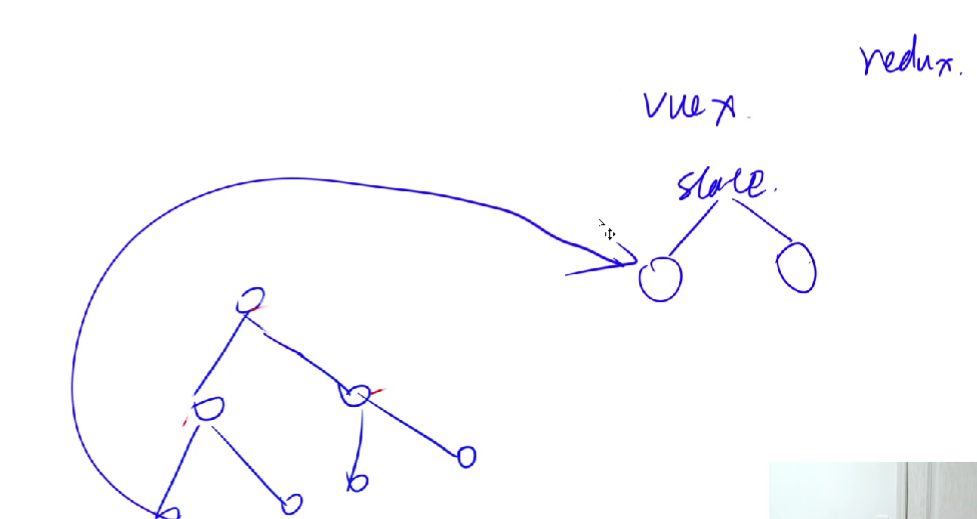 redux.
vuex.
state.